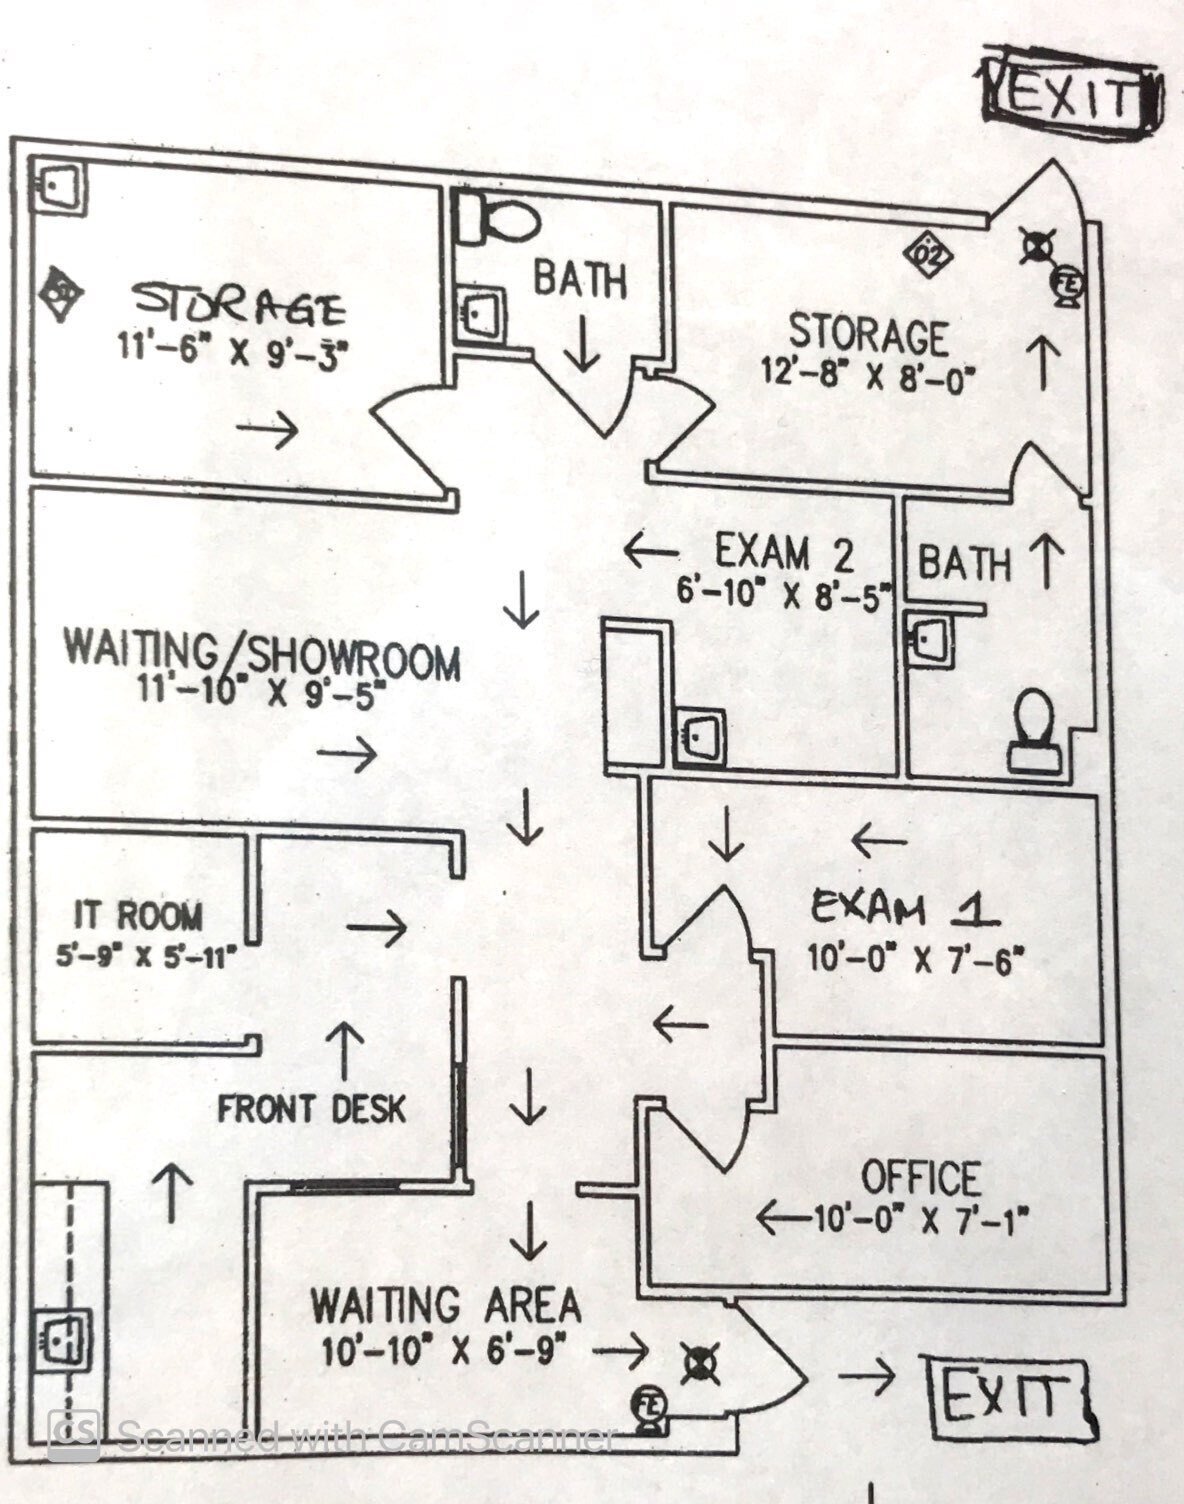 EXIT
BATH
02
FE
STORAGE
11'-6" X 9'-3"
STORAGE
12'-8" X 8'-0"
EXAM 2
6'-10" X 8'-5"
BATH
WAITING/SHOWROOM
11'-10" X 9'-5"
IT ROOM
5'-9" X 5'-11"
EXAM 1
10'-0" X 7'-6"
FRONT DESK
OFFICE
10'-0" X 7'-1"
WAITING AREA
10'-10" X 6'-9"
FE
EXIT
CS Scanned with CamScanner